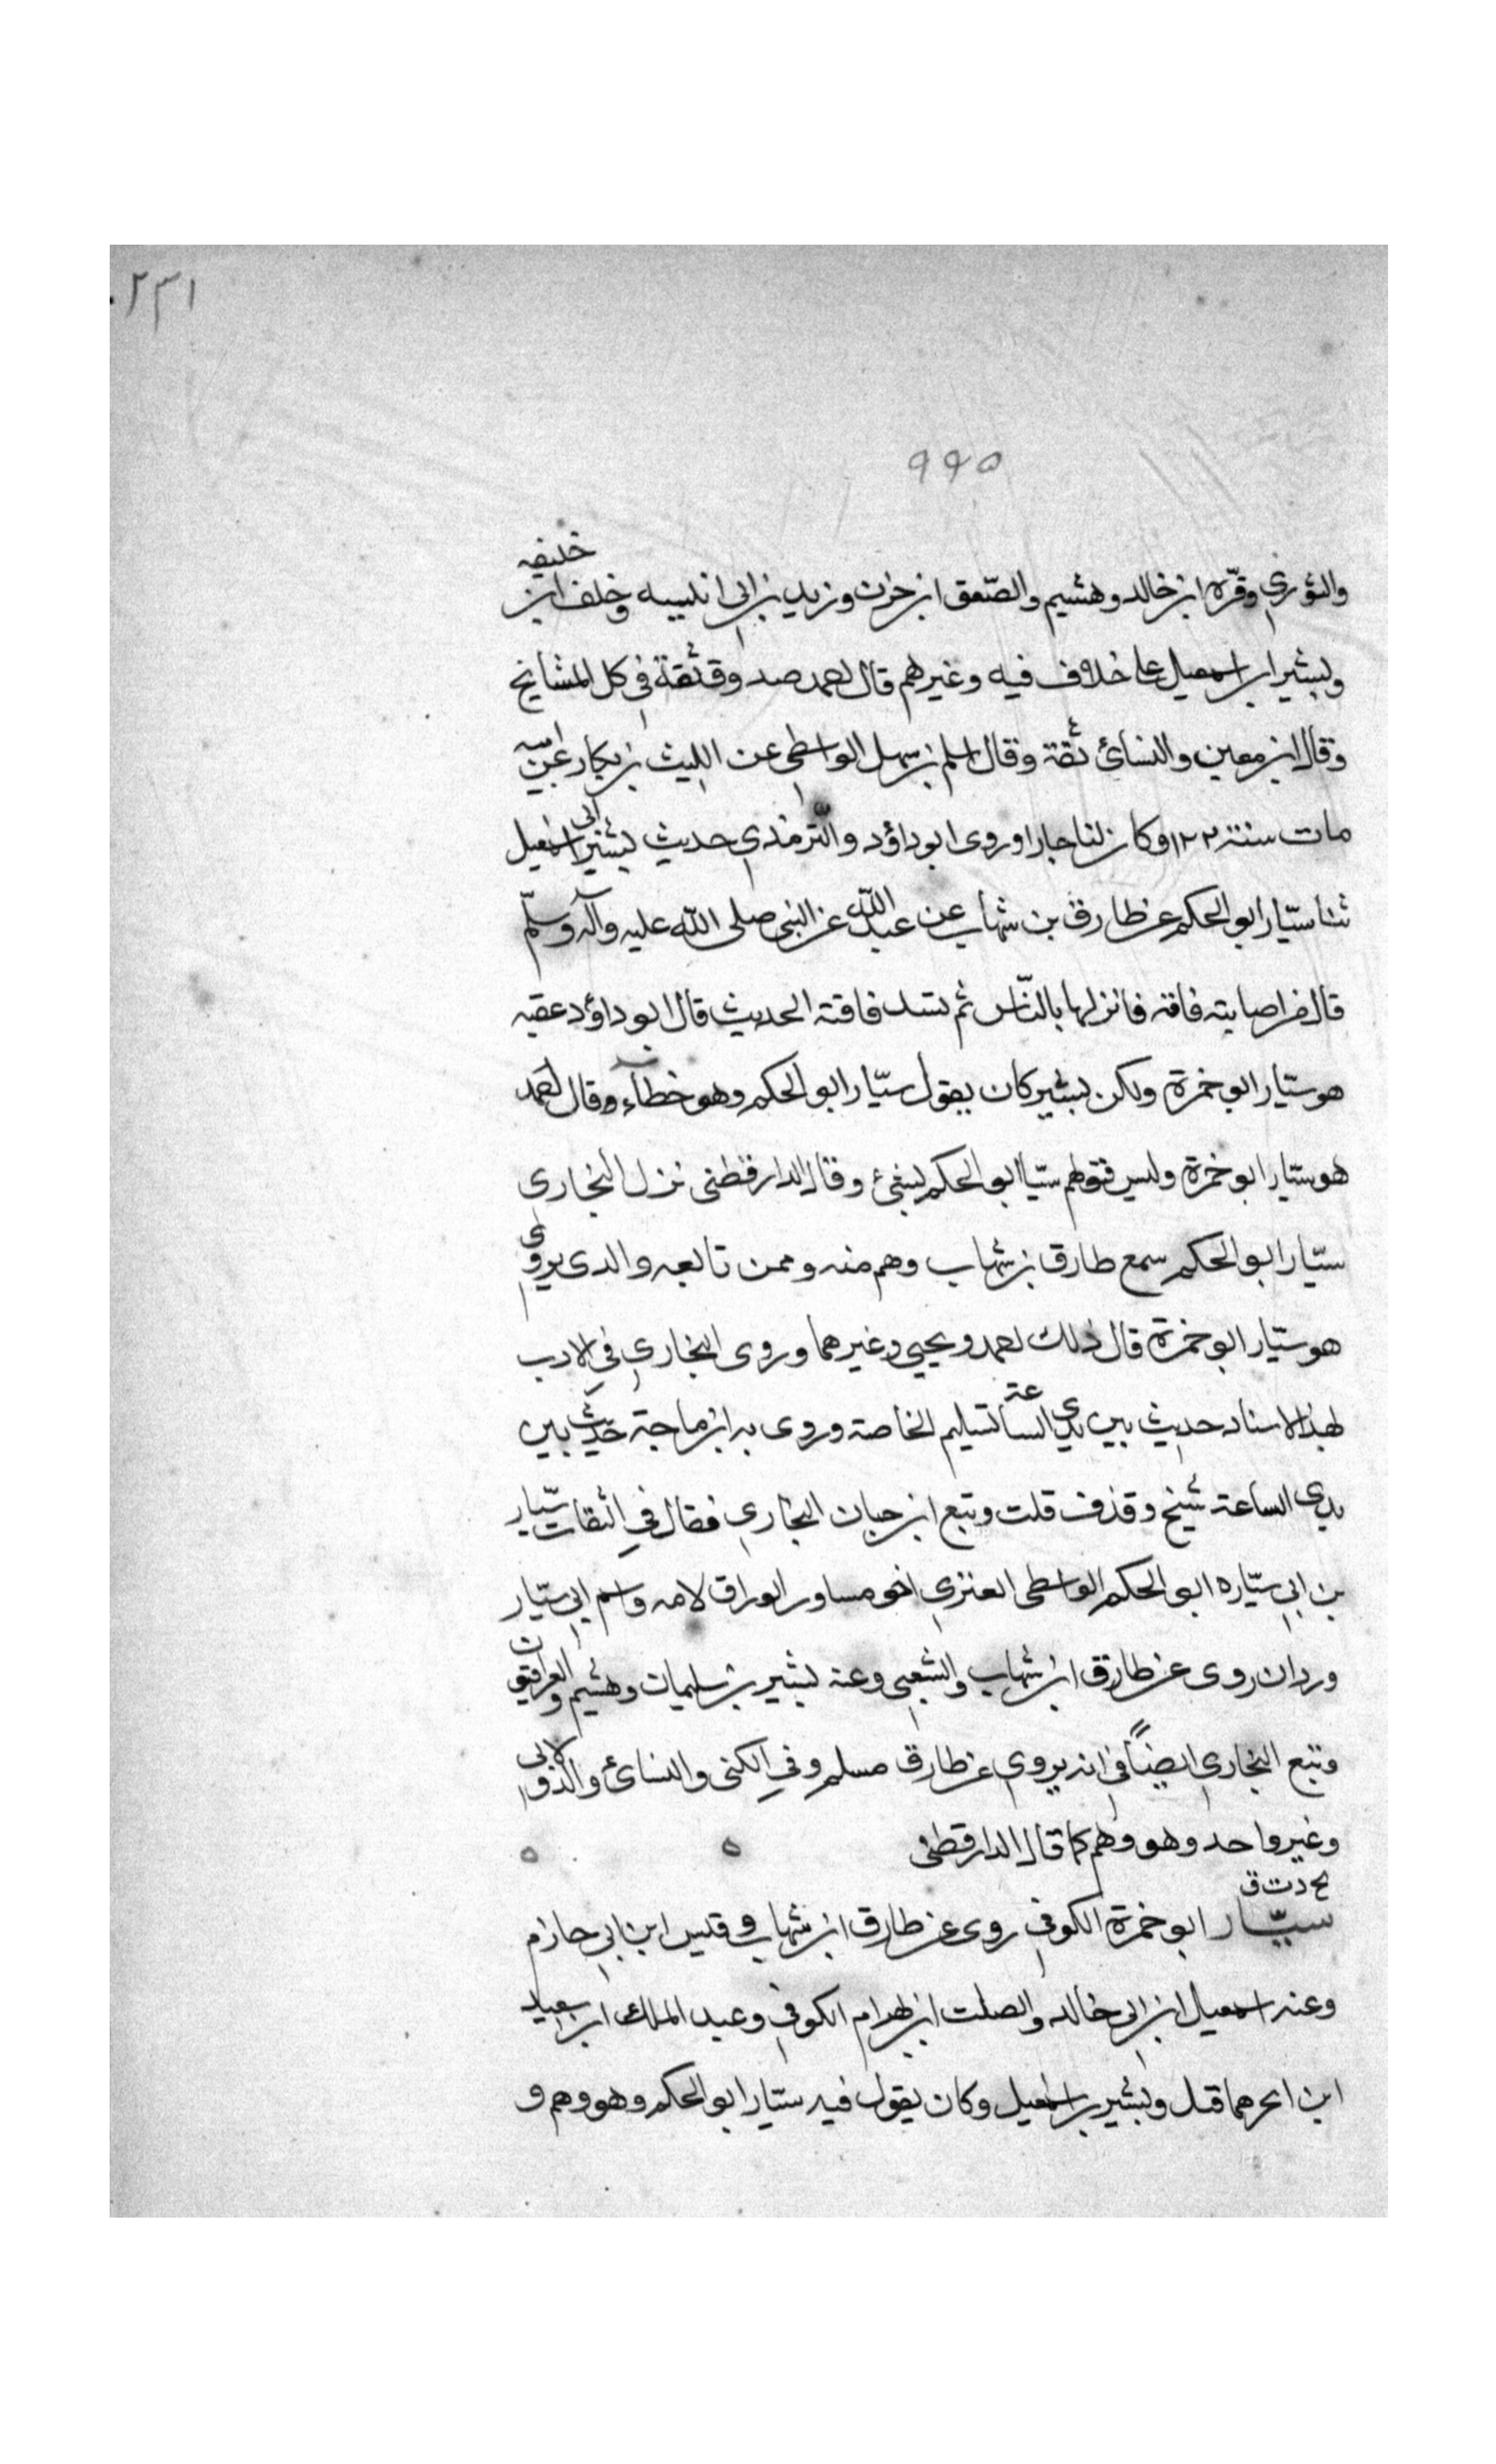 ٢٣١
٩٩٥
والثوري وقرّه ابن خالد وهشيم والصّعق ابن حزن وزيد بن ابى انيسه وخلف ابن خليفه
وبشير ابن اسمعيل على خلاف فيه وغيرهم قال احمد صدوق ثقة في كل المشايخ
وقال ابن معين والنسائ ثقة وقال اسلم بن سهل الواسطى عن الليث بن بكار عن ابيه
مات سنة ١٢٢ وكان لنا جارا وروى ابو داؤد والترمذي حديث بشير ابى اسمعيل
ثنا سيّار ابو الحكم عن طارق بن شهاب عن عبد الله عن النبى صلى الله عليه وآله وسلّم
قال من اصابته فاقه فانزلها بالنّاس ثم تسد فاقته الحديث قال ابو داؤد عقبه
هو سيّار ابو حمزة ولكن بشير كان يقول سيّار ابو الحكم وهو خطآء وقال احمد
هو سيّار ابو حمزة وليس قولهم سيّا ابو الحكم بشئ وقال الدارقطنى نزل البخاري
سيّار ابو الحكم سمع طارق بن شهاب وهم منه وممن تابعه والدى يروى
هو سيّار ابو حمزة قال ذلك احمد ويحيى وغيرهما وروى البخاري في الادب
بهذا الاسناد حديث بين يدي الساعة تسليم الخاصة وروى به ابن ماجة حديث بين
يدي الساعة شيخ وقذف قلت وتبع ابن حبان البخاري فقال في الثقات سيّار
بن ابي سيّاره ابو الحكم الواسطى العنزي اخو مساور الوراق لامه واسم ابي سيّار
وردان روى عن طارق ابن شهاب والشعبى وعنه بشير بن سليمات وهشيم والعراقيون
وتبع البخاري ايضاً في انه يروي عن طارق مسلم وفي الكنى والنسائ والدولابى
وغير واحد وهو وهم كما قال الدارقطنى
بخ د ت ق
سيّار ابو حمزة الكوفي روى عن طارق ابن شهاب وقيس ابن ابي حازم
وعنه اسمعيل ابن ابى خالد والصلت ابن بهرام الكوفي وعبد الملك ابن سعيد
ابن ابحر هما قيل وبشير بن اسمعيل وكان يقول فيه سيّار ابو الحكم وهو وهم و